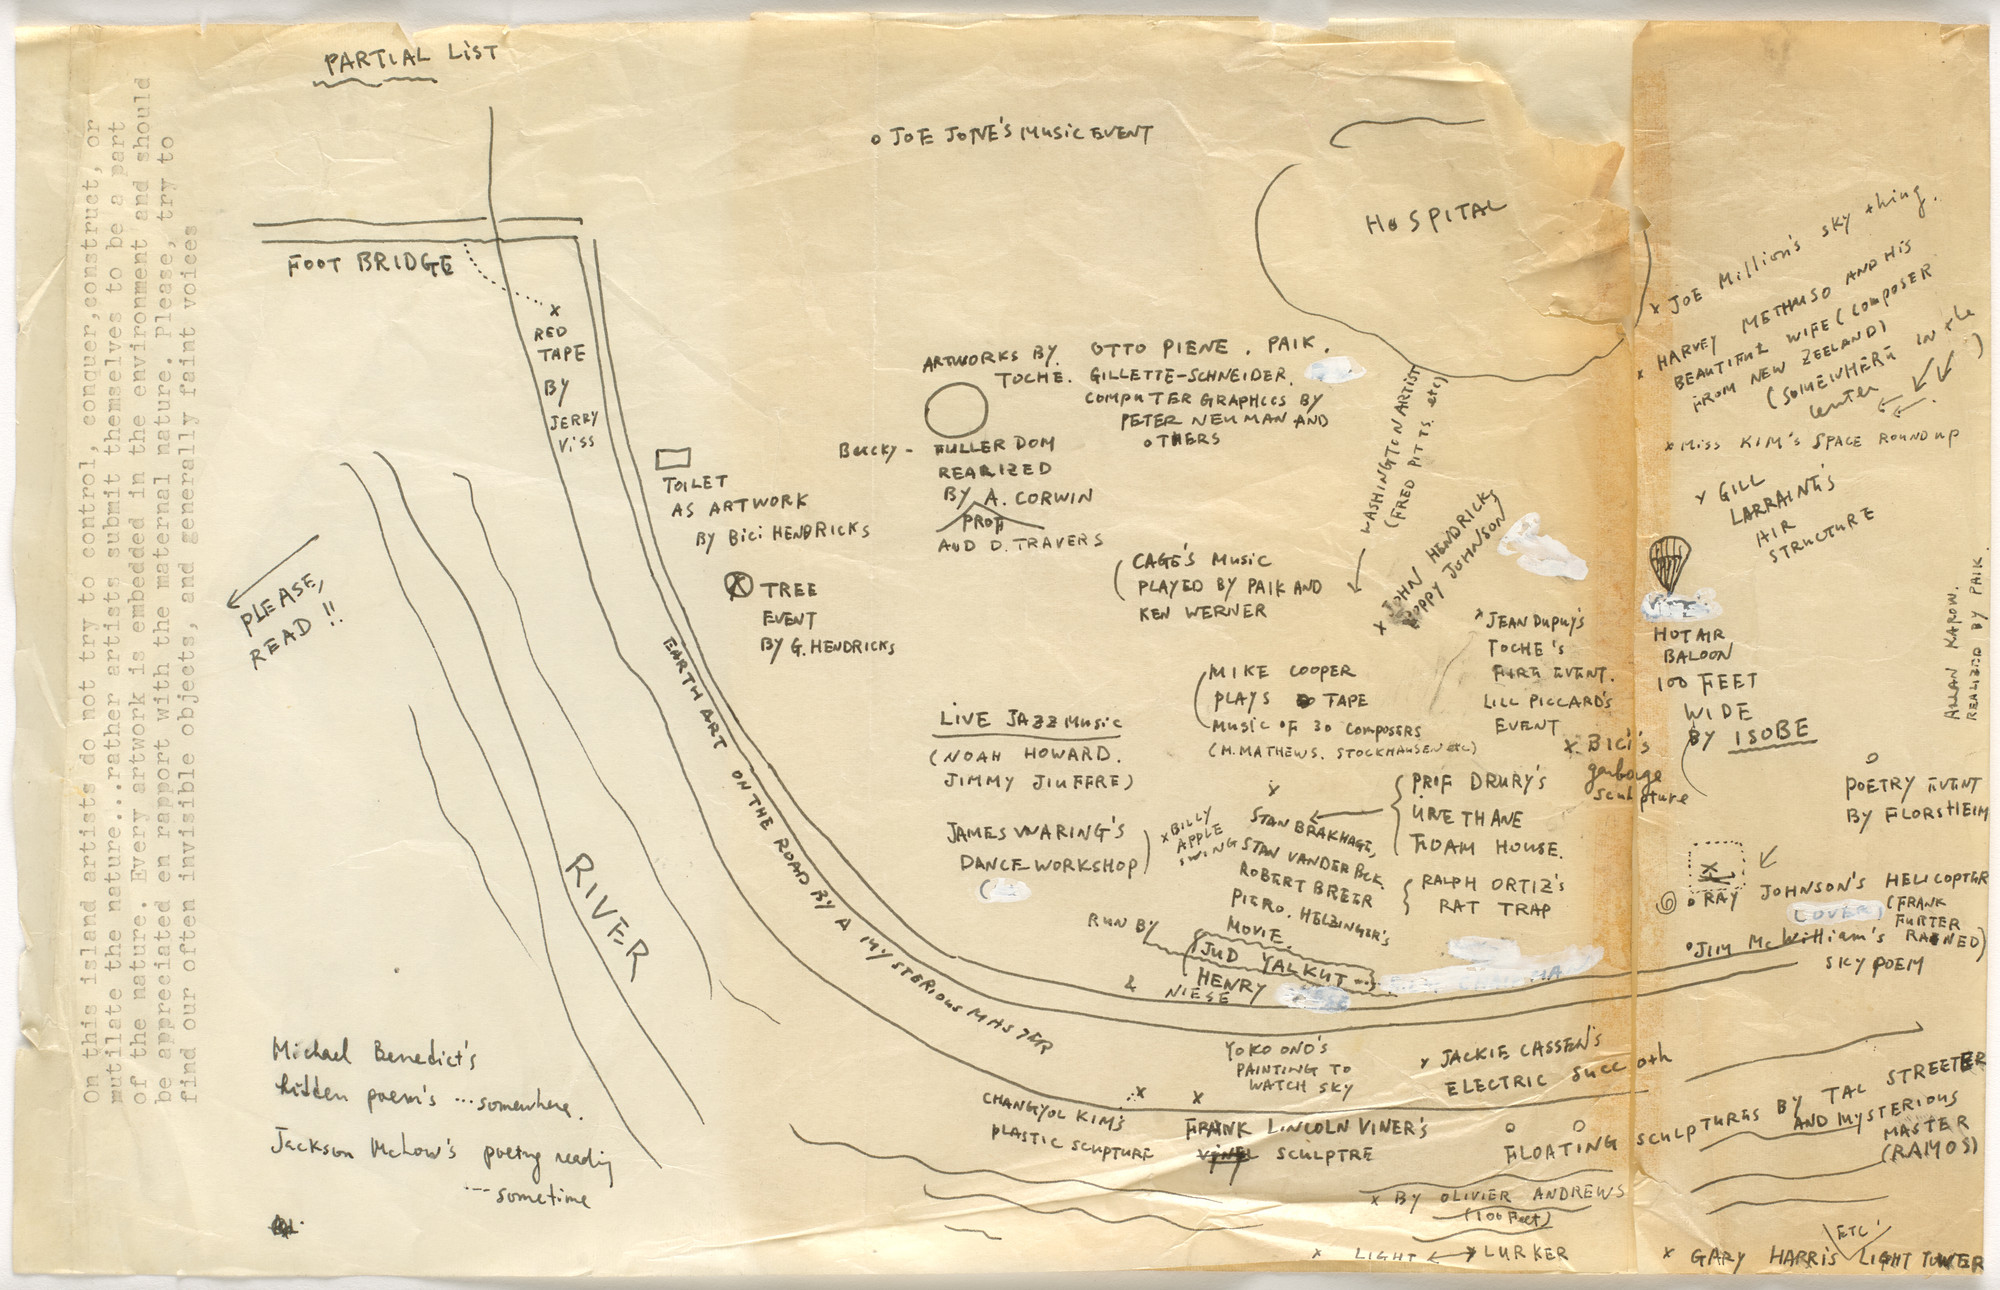 PARTIAL LIST
On this island artists do not try to control, conquer,construct, or
mutilate the nature...rather artists submit themselves to be a part
of the nature. Every artwork is embedded in the environment and should
be appreciated en rapport with the maternal nature. Please, try to
find our often invisible objects, and generally faint voices
PLEASE,
READ !!
FOOT BRIDGE
x
RED
TAPE
BY
JERRY
ViSS
o JOE JONE'S MUSIC EVENT
HOSPITAL
TOILET
AS ARTWORK
BY BICI HENDRICKS
TREE
EVENT
BY G. HENDRICKS
ARTWORKS BY. OTTO PIENE. PAIK.
TOCHE. GILLETTE-SCHNEIDER.
COMPUTER GRAPHICS BY
PETER NEUMAN AND
OTHERS
Bucky - FULLER DOM
REARIZED
BY A. CORWIN
PROF
AUD D. TRAVERS
WASHINGTON ARTIST
(FRED PITTS. etc)
x JOHN HENDRICKS
POPPY JOHNSON
(CAGE'S MUSIC
PLAYED BY PAIK AND
KEN WERNER
(MIKE COOPER
PLAYS TAPE
MUSIC OF 30 COMPOSERS
(M. MATHEWS. STOCKHAUSEN etc)
x JEAN DUPUY'S
TOCHE'S
FIRE EVENT.
LILL PICCARD'S
EVENT
x BICI'S
garbage
sculpture
LIVE JAZZ MUSIC
(NOAH HOWARD.
JIMMY JIUFFRE)
JAMES WARING'S
DANCE WORKSHOP)
x BILLY
APPLE
SWING
x
STAN BRAKHAGE,
STAN VANDER BCK.
ROBERT BREER
PIERO. HELZINGER'S
MOVIE.
RUN BY
(JUD YALKUT...)
& HENRY
NIESE
{ PROF DRURY'S
URETHANE
FOAM HOUSE.
{ RALPH ORTIZ'S
RAT TRAP
x JOE Million's sky thing.
x HARVEY METHUSO AND HIS
BEAUTIFUL WIFE (COMPOSER
FROM NEW ZEELAND)
(SOMEWHERE in the
center)
x MISS KIM'S SPACE ROUNDUP
x GILL
LARRAINE'S
AIR
STRUCTURE
HOT AIR
BALOON
100 FEET
WIDE
BY ISOBE
ALLAN KAROW.
REALIZED BY PAIK
POETRY EVENT
BY FLORSHEIM
x
o RAY JOHNSON'S HELICOPTER
COVER) (FRANK
FURTER
RAINED)
o JIM McWilliam's
SKY POEM
EARTH ART ON THE ROAD BY A MYSTERIOUS MASTER
RIVER
Michael Benedict's
hidden poem's ...somewhere.
Jackson McLow's poetry reading
--- sometime
CHANGYOL KIM'S
PLASTIC SCUPTURE
YOKO ONO'S
PAINTING TO
WATCH SKY
x JACKIE CASSEN'S
ELECTRIC Succoth
x
FRANK LINCOLN VINER'S
SCULPTRE
FLOATING SCULPTURES BY TAL STREETER
AND MYSTERIOUS
MASTER
(RAMOS)
x BY OLIVIER ANDREWS
(100 Feet)
x LIGHT ↔ x LURKER
ETC'
x GARY HARRIS LIGHT TOWER